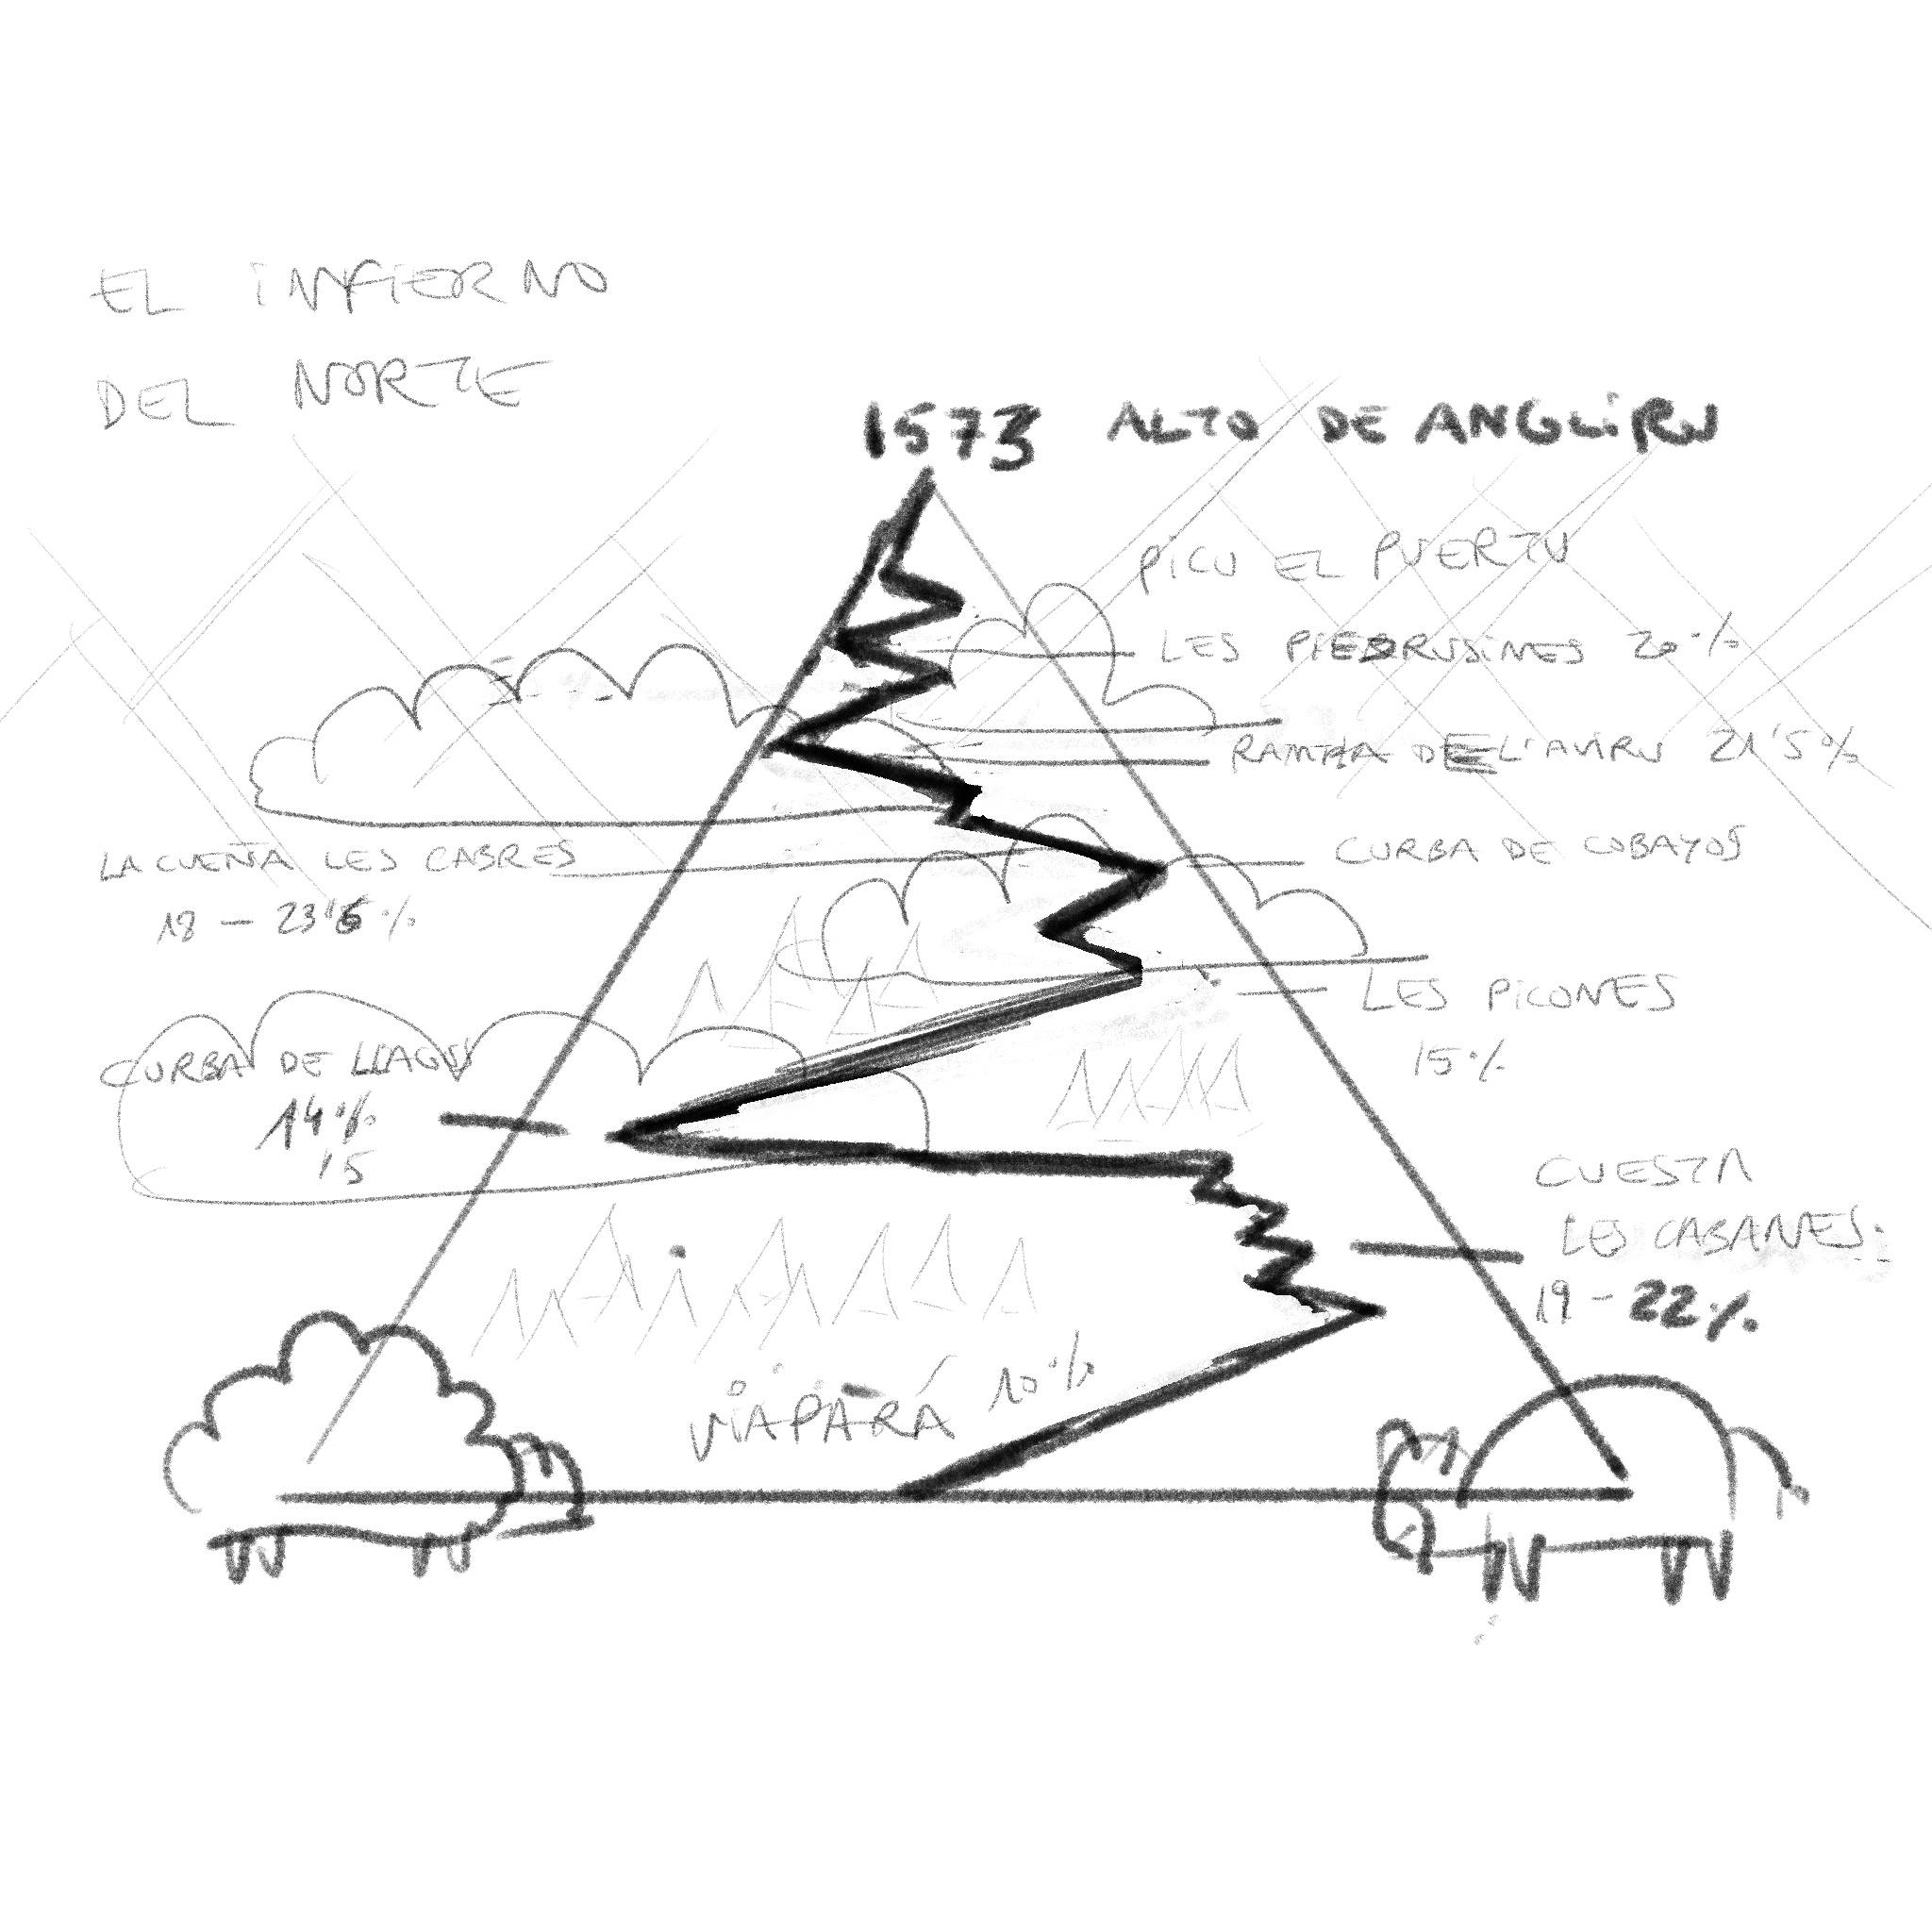 EL INFIERNO
DEL NORTE
1573 ALTO DE ANGLIRU
PICU EL PUERTU
LES PIEDRUSINES 20%
RAMPA DE L'AVIRU 21'5%
LA CUEÑA LES CABRES
18 - 23'5%
CURBA DE COBAYOS
LES PICONES
15%
CURBA DE LLAGOS
14%
15
CUESTA
LES CABANES
19 - 22%
VIAPARÁ 10%